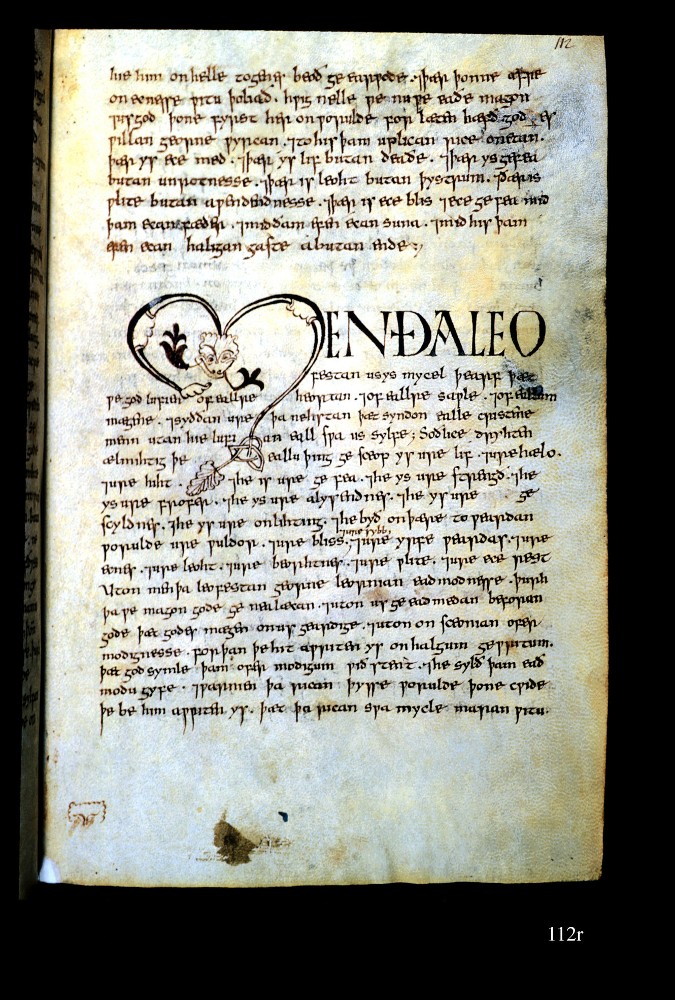 112
hie him on helle togæder beoð geearwode. ⁊ þær þonne æfre
on ecnesse witu þoliað. hwig nelle we nu þe eaðe magon
wið god þone fyrst her on worulde for læten hæfð god es
willan georne wyrcan. ⁊ to his þam uplican rice onettan.
þær ys ece med. ⁊ þær ys lif butan deaðe. ⁊ þær ys gefea
butan unrotnesse. ⁊ þær is leoht butan þystrum. ⁊ þær is
wlite butan awendednesse. ⁊ þær is ece blis ⁊ ece ge fea mid
þam ecan fæder. ⁊ mid þam efen ecan suna. ⁊ mid his þam
efen ecan halgan gaste a butan ende;
MEN ÐA LEO
festan us ys mycel þearf þæt
we god lufien of ealre heortan. ⁊ of ealre saple. ⁊ of eallum
mægene. ⁊ syððan ure þa nehstan þæt syndon ealle cristene
menn utan hie lufian eall swa us sylfe; Soðlice dryhten
ælmihtig þe eallu þing ge sceop ys ure lif. ⁊ ure hælo.
⁊ ure hiht. ⁊ he is ure ge fea. ⁊ he ys ure strengð. ⁊ he
ys ure frofer. ⁊ he ys ure alysendnes. ⁊ he ys ure ge
scyldnes. ⁊ he ys ure onlihting. ⁊ he byð on þære toweardan
⁊ ure sybb.
worulde ure wuldor. ⁊ ure bliss. ⁊ ure yrfe weardas. ⁊ ure
ecnes. ⁊ ure leoht. ⁊ ure beorhtnes. ⁊ ure wlite. ⁊ ure ece rest
Uton men þa leofestan georne leornian eadmodnesse. þurh
þa we magon gode ge nealæcan. ⁊ uton us ge eadmedan beforan
gode þæt godes mægen on us geardige. ⁊ uton on scunian ofer
modignesse. for þan þe hit awriten ys on halgum gewritum.
þæt god symle þam ofer modigum wið stent. ⁊ he sylð þam ead
modu gyfe. ⁊ warnien þa rican þysse worulde þone cwide
þe be him awriten ys. þæt þa rican swa mycle maran witu
112r